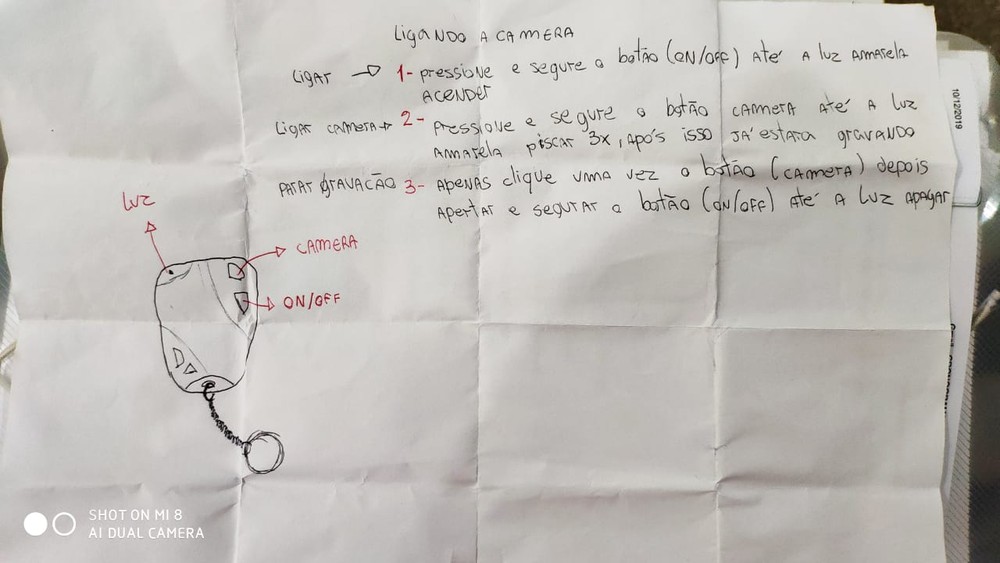 LIGANDO A CAMERA
LIGAR → 1- pressione e segure o botão (ON/OFF) Até A luz AmArelA
AcendeR
LIGAR CAMERA → 2- pressione e segure o botão CAMERA Até A luz
AmARelA piscar 3x, Após isso JÁ estara gravando
PARAR GRAVACÃO 3- Apenas clique uma vez o botão (CAMERA) depois
Apertar e segurar o botão (ON/OFF) Até A luz ApAgAR
luz
CAMERA
ON/OFF
10/12/2019
SHOT ON MI 8
AI DUAL CAMERA